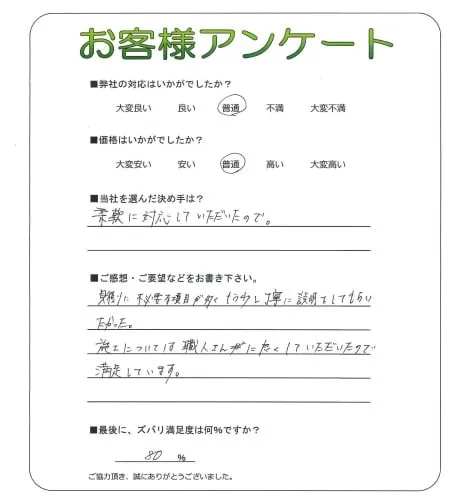 お客様アンケート
■弊社の対応はいかがでしたか?
大変良い 良い 普通 不満 大変不満
■価格はいかがでしたか?
大変安い 安い 普通 高い 大変高い
■当社を選んだ決め手は?
柔軟に対応していただいたので。
■ご感想・ご要望などをお書き下さい。
見積りに不必要な項目が多く もう少し丁寧に説明をしてもらい
たかった。
施工については職人さんがに良くしていただいたので
満足しています。
■最後に、ズバリ満足度は何%ですか?
80 %
ご協力頂き、誠にありがとうございました。